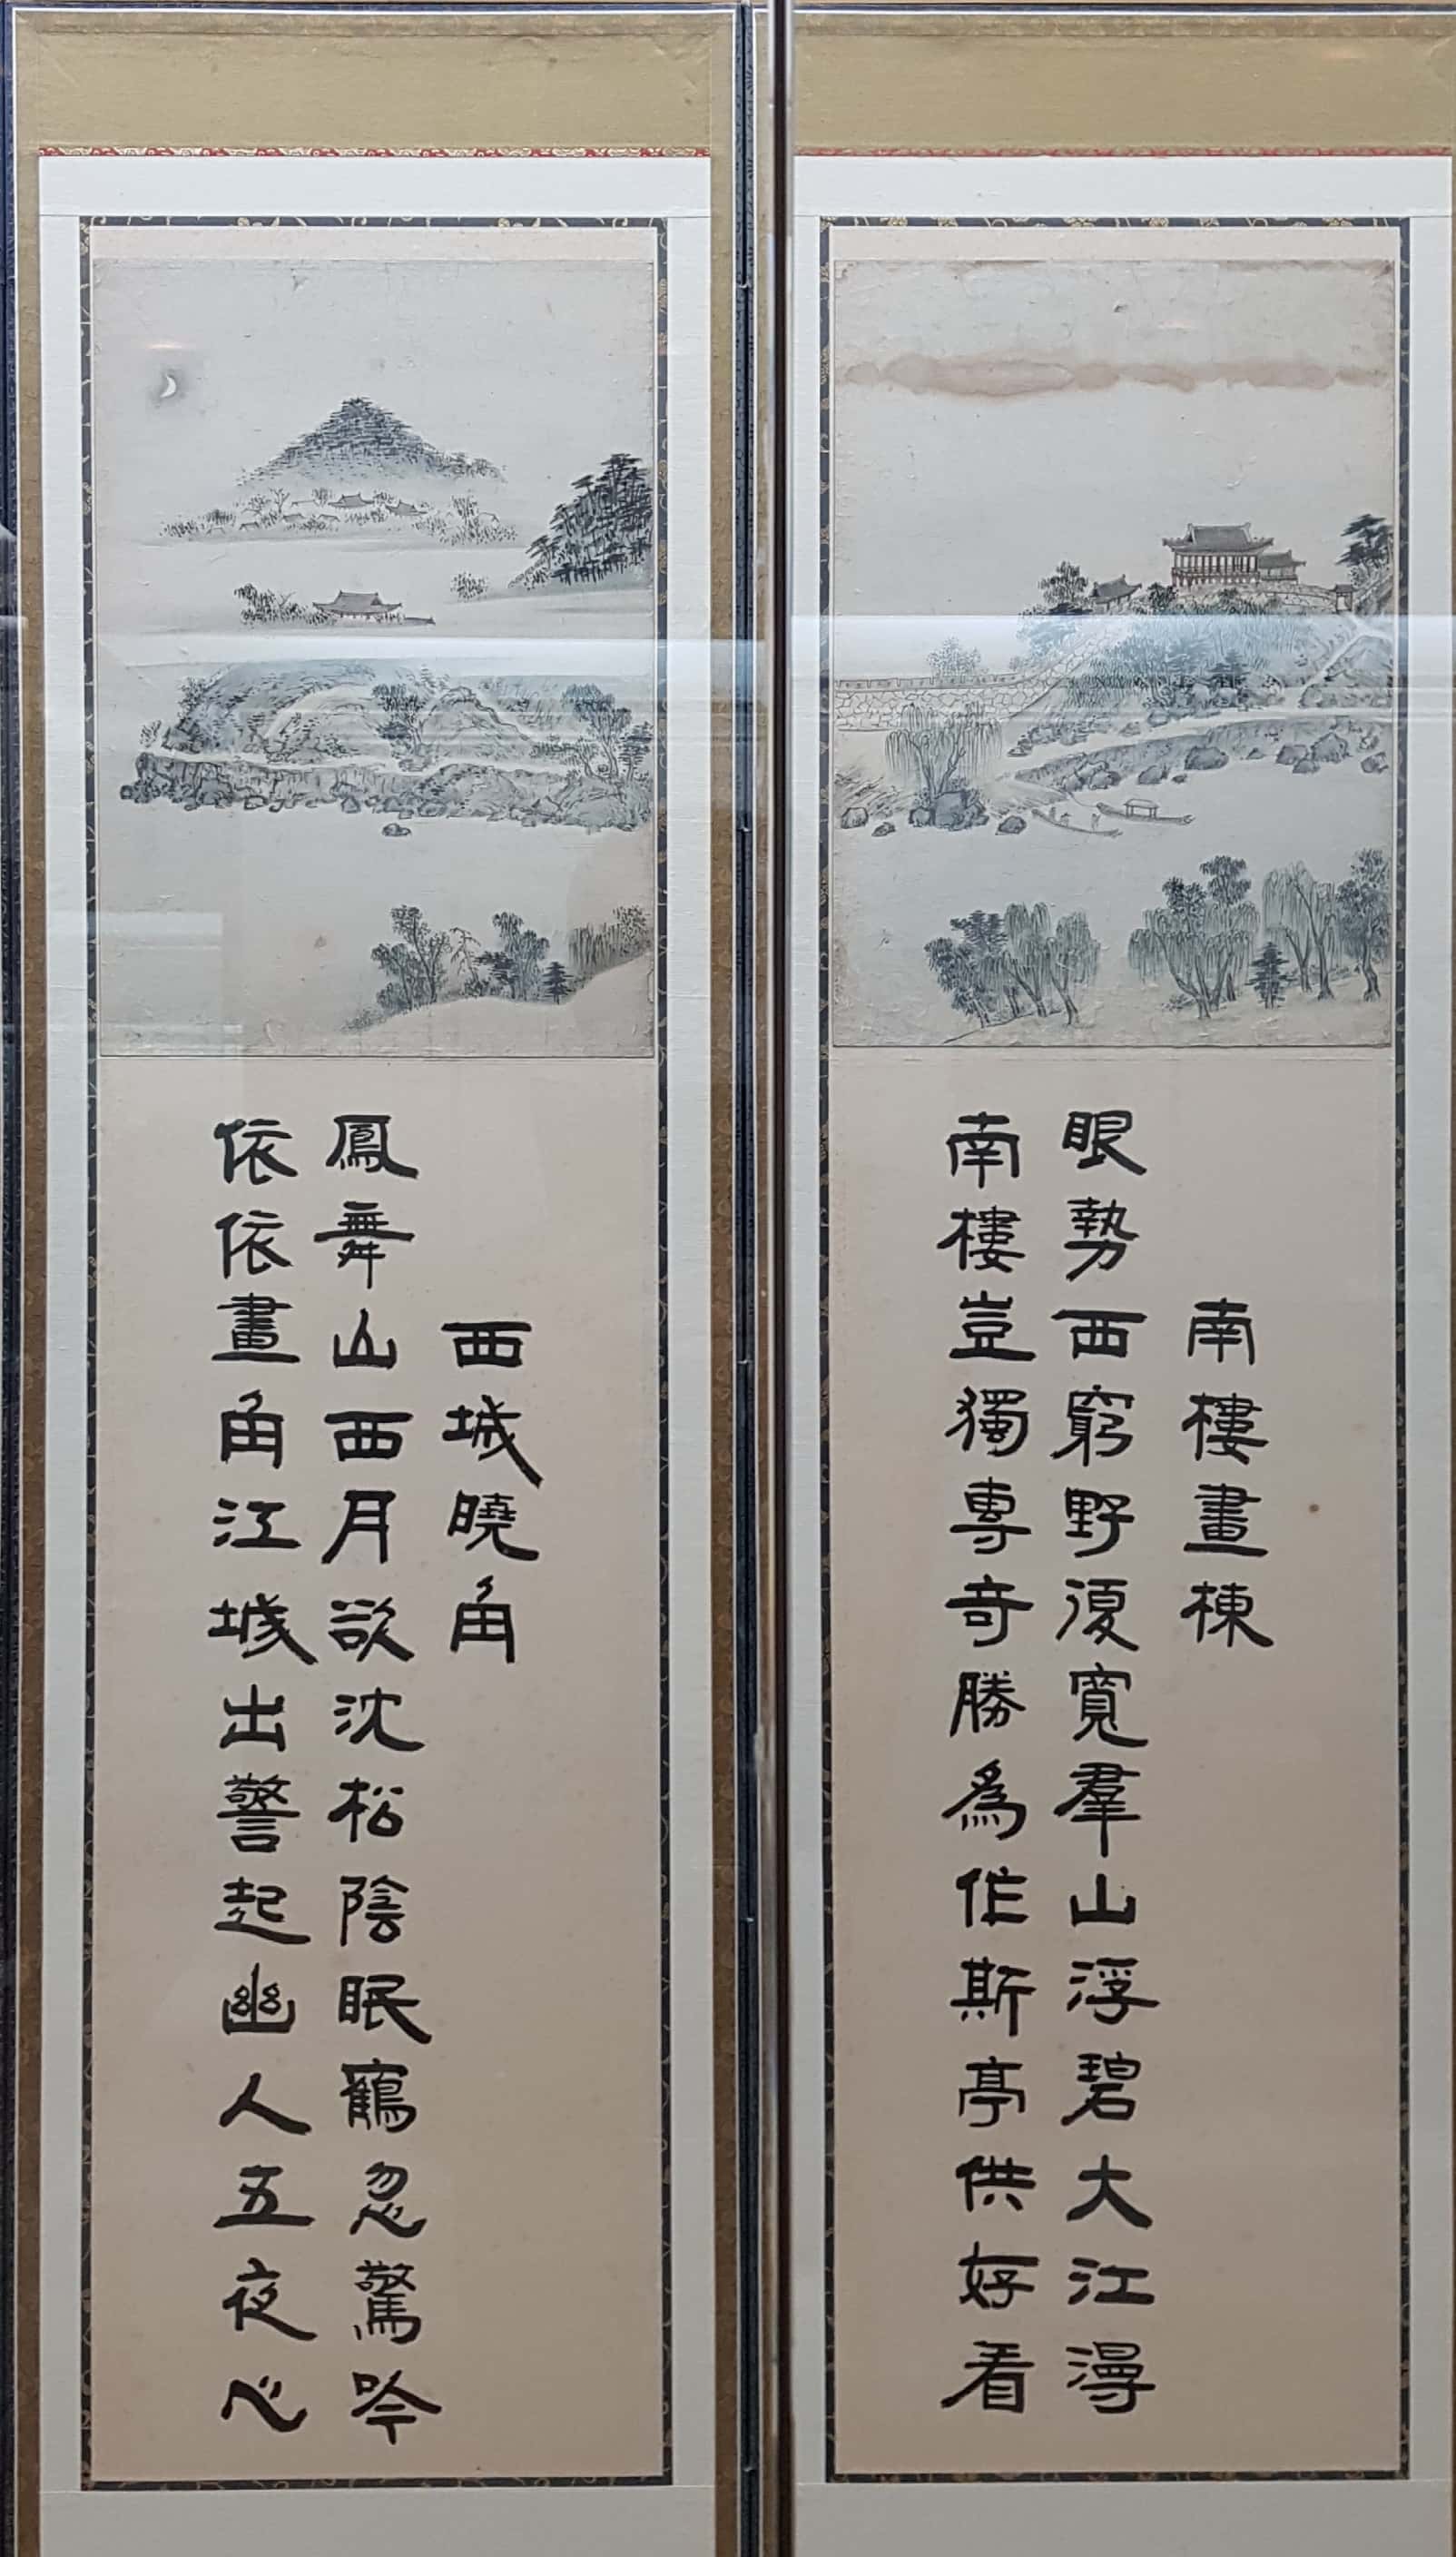 南樓畫棟
眼勢西窮野復寬羣山浮碧大江漫
南樓豈獨專奇勝爲作斯亭供好看
西城曉角
鳳舞山西月欲沈松陰眠鶴忽驚吟
依依畫角江城出警起幽人五夜心